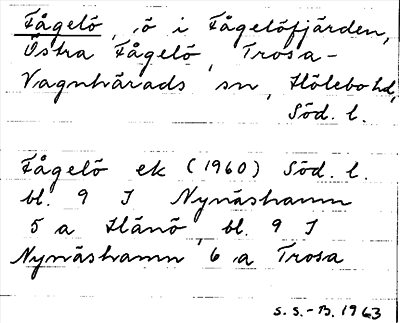 Fågelö, ö i Fågelöfjärden,
Östra Fågelö, Trosa-
Vagnhärads sn, Hölebo hd,
Söd. l.
Fågelö ek (1960) Söd. l.
bl. 9 I Nynäshamn
5 a Hånö, bl. 9 I
Nynäshamn 6 a Trosa
S.S.-B. 1963